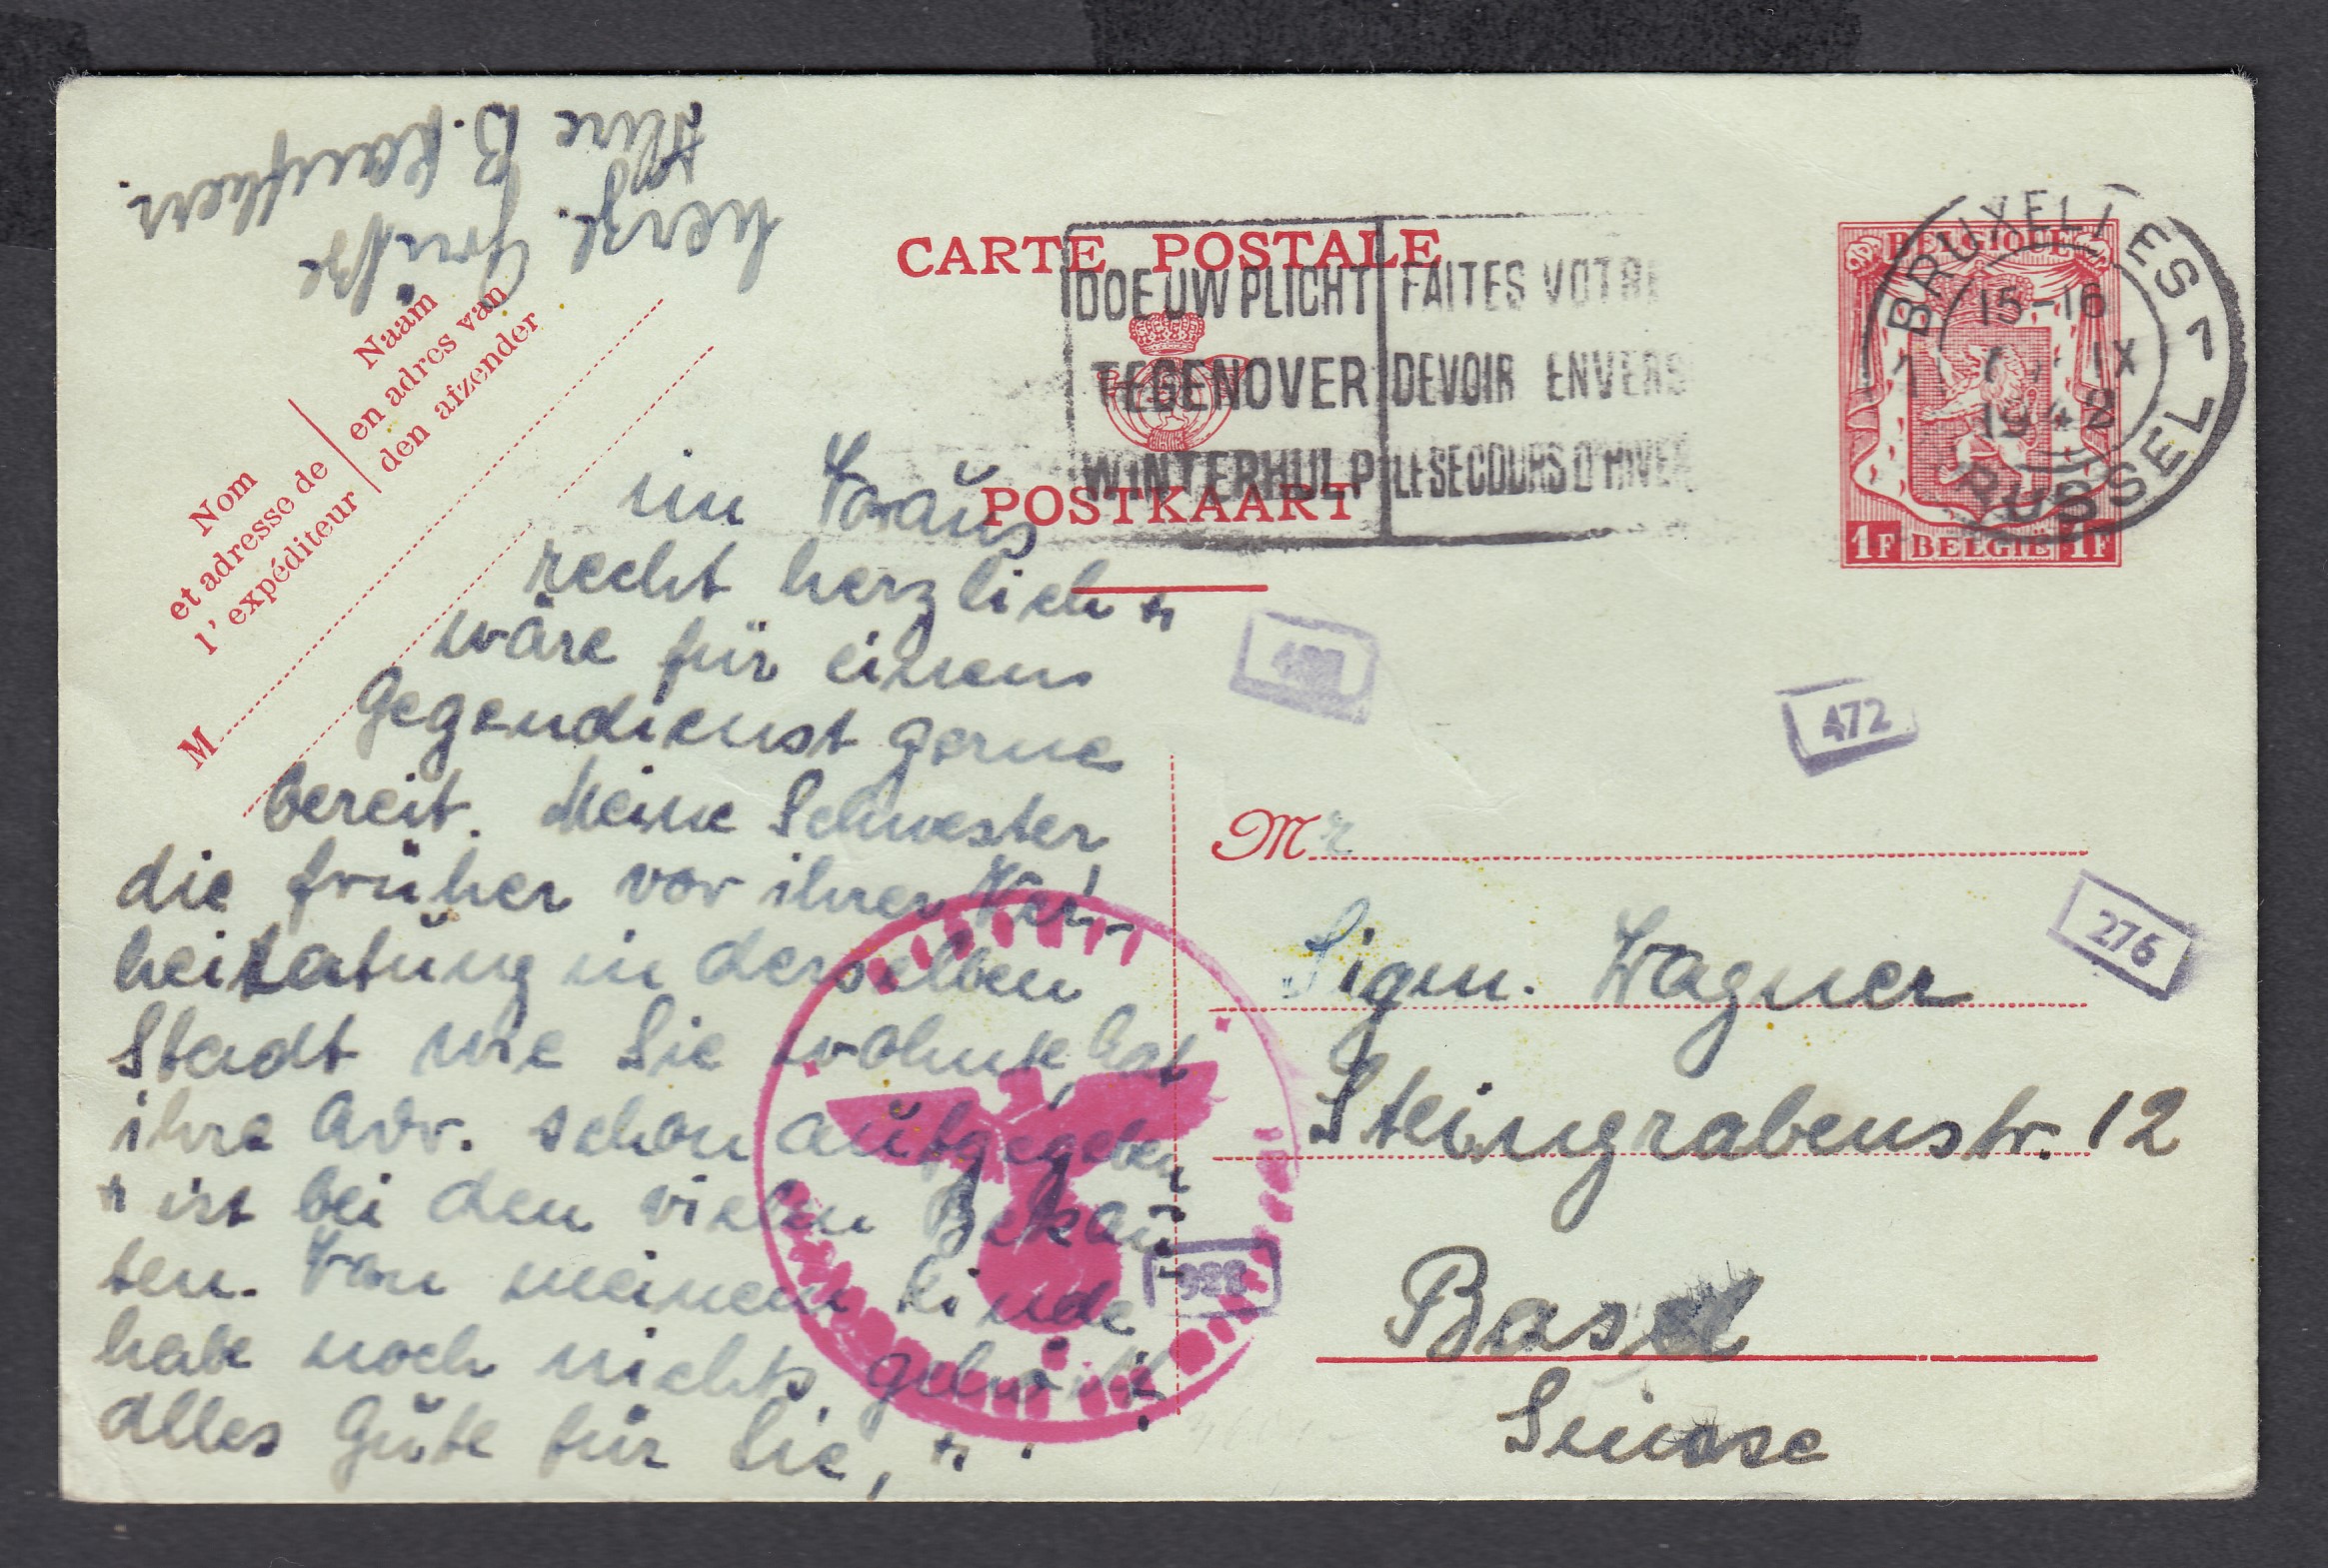 herzl. Grüße
Ihre B. Kaufherr.
Nom
et adresse de
l'expéditeur
Naam
en adres van
den afzender
M
CARTE POSTALE
POSTKAART
DOE UW PLICHT
TEGENOVER
WINTERHULP
FAITES VOTRE
DEVOIR ENVERS
LE SECOURS D'HIVER
BRUXELLES 7
15-16
IX
1942
BRUSSEL
BELGIQUE
1F BELGIË 1F
im Voraus
recht herzlich +
wäre für einen
Gegendienst gerne
bereit. Meine Schwester
die früher vor ihrer Ver-
heiratung in derselben
Stadt wie Sie wohnte, hat
ihre Adr. schon aufgegeben
+ ist bei den vielen Bekan-
ten. Von meinem Kinde
habe noch nichts gehört.
Alles Gute für Sie, +
472
276
Mr
Sigm. Wagner
Steingrabenstr. 12
Basel
Suisse